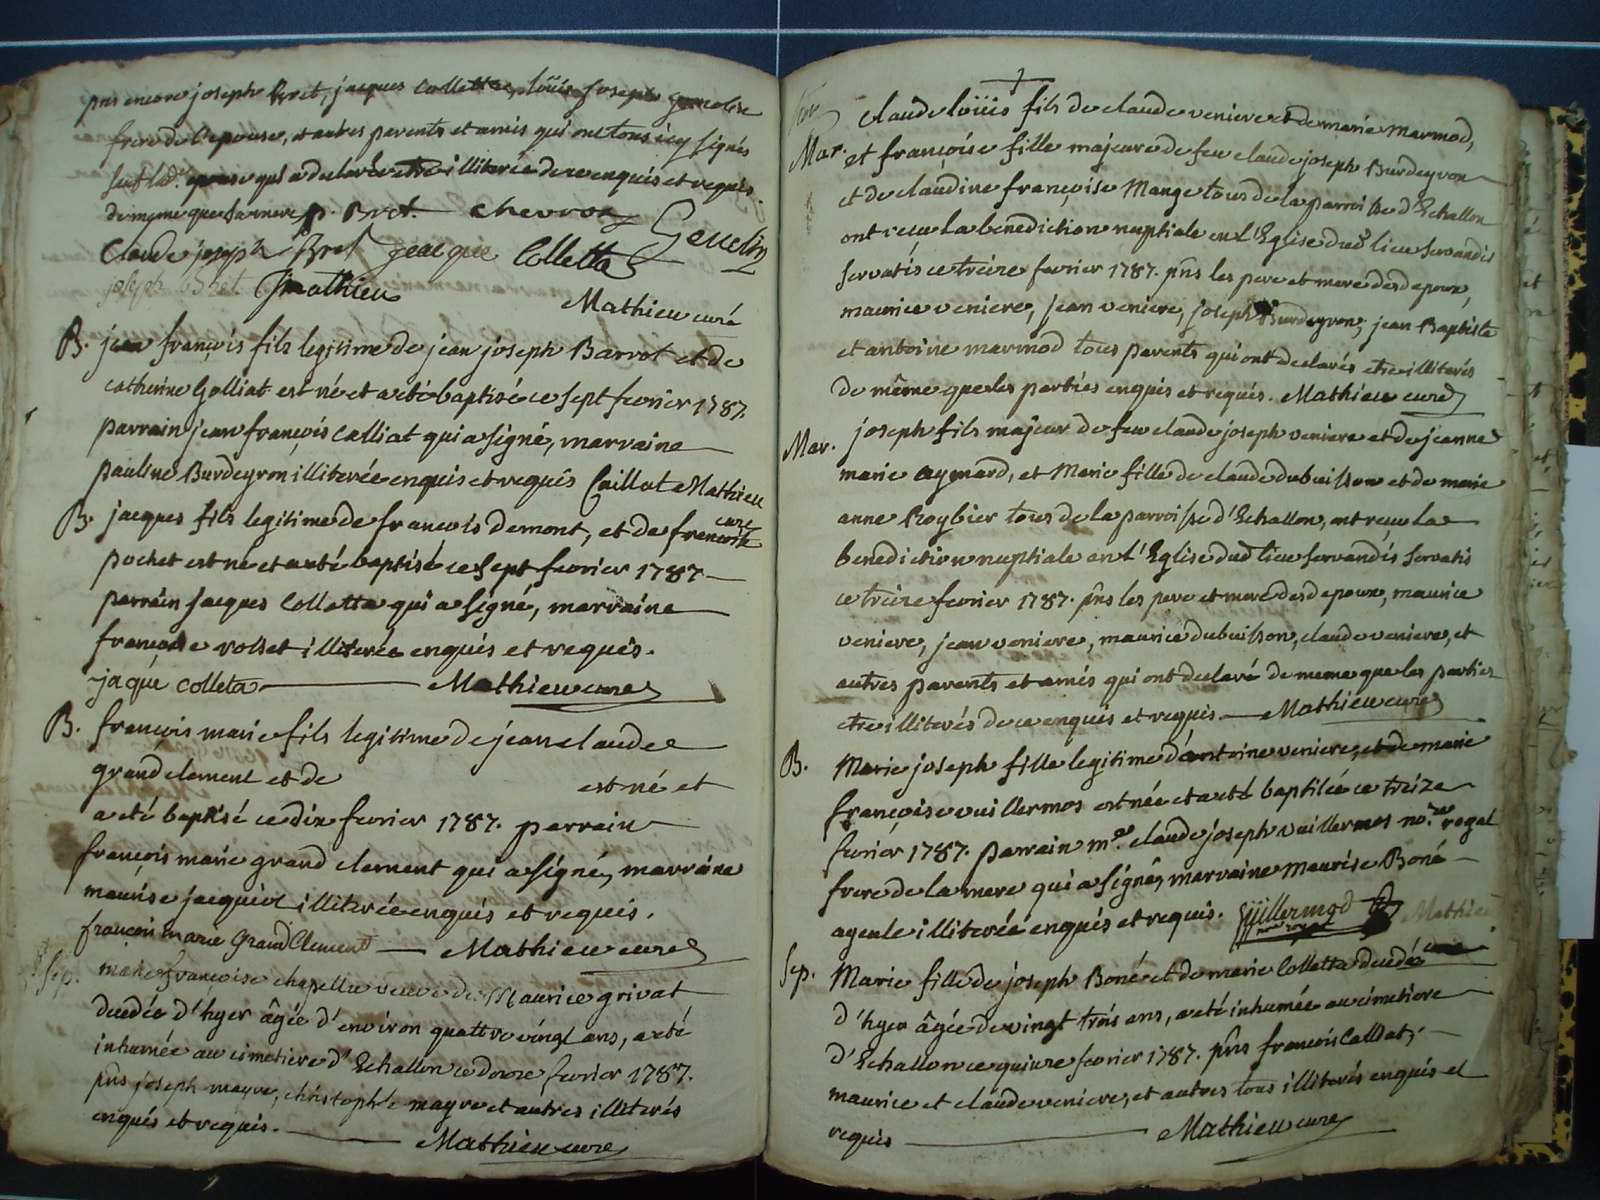 pns encore joseph Bret, jacques Collettaz, loüis joseph
frere de l'epouse, et autres parents et amis qui ont tous icy signés
sauf lad.e epouse qui a declaré etre illiterée de ce enquis et requis.
de meme que sa mere p. Bret. Chevron
Claude joseph Bret Jeacque Colletta Gencelin
joseph bret. J mathieu
Mathieu curé
B. jean françois fils legitime de jean joseph Barrot et de
catherine Golliat est né et a eté baptisé ce sept fevrier 1787.
parrain jean françois Calliat qui a signé, marraine
pauline Burdeyron illiterée enquis et requis Caillat Mathieu
curé
B. jacques fils legitime de francois demont, et de francoise
pochet est né et a eté baptisé ce sept fevrier 1787
parrain jacques Colletta qui a signé, marraine
françoise rosset illiterée enquis et requis.
jaque colleta Mathieu curé
B. françois marie fils legitime de jean claude
grand clement et de est né et
a eté baptisé ce dix fevrier 1787. parrain
françois marie grand clement qui a signé, marraine
maurise jacquiot illiterée enquis et requis.
françois marie Grand Clement Mathieu curé
Sep. marie françoise chapellu veuve de Maurice grivat
decedée d'hyer âgée d'environ quattre vingt ans, a eté
inhumée au cimetiere d'Echallon ce douze fevrier 1787.
pns joseph mayre, christophle mayre et autres illiterés
enquis et requis. Mathieu curé
Claude loüis fils de claude veniere et de marie marmod,
Mar. et françoise fille majeure de feu claude joseph Burdeyron
et de claudine françoise Mange tous de la parroisse d'Echallon
ont reçu la benediction nuptiale en l'Eglise dud lieu servandis
servatis ce treize fevrier 1787. pns les pere et mere desd epoux,
maurice veniere, jean veniere, joseph Burdeyron, jean Baptiste
et antoine marmod tous parents qui ont declarés etre illiterés
de même que les parties enquis et requis. Mathieu curé
Mar. joseph fils majeur de feu claude joseph veniere et de jeanne
marie aymard, et Marie fille de claude dubuisson et de marie
anne Roybier tous de la parroisse d'Echallon, ont reçu la
benediction nuptiale en l'Eglise dud lieu servandis servatis
ce treize fevrier 1787. pns les pere et mere desd epoux, maurice
veniere, jean veniere, maurice dubuisson, claude veniere, et
autres parents et amis qui ont declaré de meme que les parties
etre illiterés de ce enquis et requis. Mathieu curé
B. Marie joseph fille legitime d'antoine veniere, et de marie
françoise vuillermos est née et a eté baptisée ce treize
fevrier 1787. parrain m.e claude joseph vuillermos no.re royal
frere de la mere qui a signé, marraine maurise Boné
ayeule illiterée enquis et requis. Vüillermod Mathieu
no.re royal curé
Sep. Marie fille de joseph Boné et de marie Colletta decedée
d'hyer âgée de vingt trois ans, a eté inhumée au cimetiere
d'Echallon ce quinze fevrier 1787. pns francois Calliat,
maurice et claude veniere, et autres tous illiterés enquis et
requis Mathieu curé